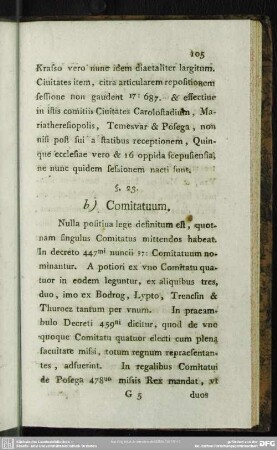 105
Krasso vero nunc idem diaetaliter largitum.
Ciuitates item, citra articularem repositionem
sessione non gaudent 171 687. & effectiue
in istis comitiis Ciuitates Carolostadium, Ma-
riatheresiopolis, Temesvar & Posega, non
nisi post sui a statibus receptionem, Quin-
que ecclesiae vero & 16 oppida scepusiensia,
ne nunc quidem sessionem nacti sunt.
§. 23.
b) Comitatuum.
Nulla positiua lege definitum est, quot-
nam singulus Comitatus mittendos habeat.
In decreto 447mi nuncii 37: Comitatuum no-
minantur. A potiori ex vno Comitatu qua-
tuor in eodem leguntur, ex aliquibus tres,
duo, imo ex Bodrog, Lypto, Trencsin &
Thurocz tantum per vnum. In praeam-
bulo Decreti 459mi dicitur, quod de vno
quoque Comitatu quatuor electi cum plena
facultate missi, totum regnum repraesentan-
tes, adfuerint. In regalibus Comitatui
de Posega 478uo missis Rex mandat, vt
G 5 duos